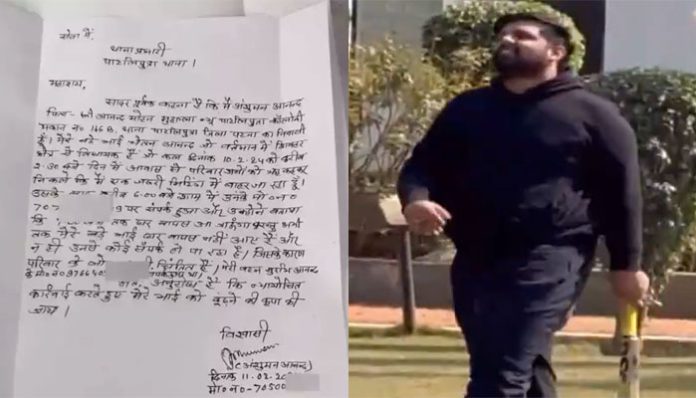 सेवा में,
थाना प्रभारी
पाटलिपुत्रा थाना।
महाशय,
सादर पूर्वक कहना है कि मैं अंशुमन आनन्द
पिता- श्री आनन्द मोहन मुहल्ला न्यू पाटलिपुत्रा कॉलोनी
मकान न० 166B, थाना पाटलिपुत्रा जिला पटना का निवासी
हूँ। मेरे बड़े भाई चेतन आनन्द जो वर्तमान में शिवहर
क्षेत्र से विधायक हैं जो कल दिनांक 10.2.24 को करीब
2.30 बजे दिन में आवास से परिवारजनों को यह कहकर
निकले कि मैं एक जरूरी मिटिंग में बाहर जा रहा हूँ।
उसके बाद करीब 6.00 बजे शाम में उनके मो०न०
707 9 पर संपर्क हुआ और उन्होंने बताया
कि तक घर वापस आ जाऊंगा परन्तु अभी
तक मेरे बड़े भाई घर वापस नहीं आए हैं और
न ही उनसे कोई संपर्क हो पा रहा है। जिसके कारण
परिवार के लोग चिंतित हैं। मेरी बहन सुरभि आनन्द
के मो०न० 876640
अनुरोध है कि न्यायोचित
कार्रवाई करते हुए मेरे भाई को ढूढ़ने की कृपा की
जाय।
विश्वासी
(अंशुमन आनन्द)
दिनांक 11.02.20
मो०न०-70500